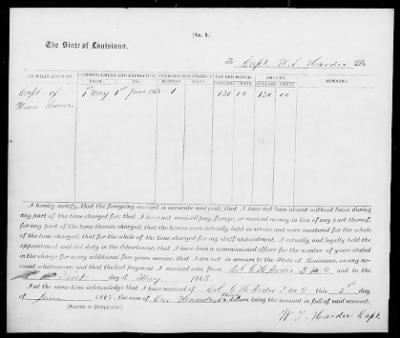 [No. 3.]
The State of Louisiana,
To Capt. W. T. Hardie Dr.
ON WHAT ACCOUNT. COMMENCEMENT AND EXPIRATION. TERM OF SERVICE CHARGED. PAY PER MONTH. AMOUNT. REMARKS.
FROM— TO— MONTHS DAYS DOLLARS CENTS DOLLARS CENTS
1st May 1st June 1863 1 130 00 130 00
I hereby certify, that the foregoing account is accurate and just; that I have not been absent without leave during
any part of the time charged for; that I have not received pay, forage, or received money in lieu of any part thereof,
for any part of the time therein charged; that the horses were actually kept in service and were mustered for the whole
of the time charged; that for the whole of the time charged for my staff appointment, I actually and legally held the
appointment and did duty in the department; that I have been a commissioned officer for the number of years stated
in the charge for every additional five years service; that I am not in arrears to the State of Louisiana, on any ac-
count whatsoever; and that the last payment I received was from Col. C. H. and to
the First day of May 1863.
I at the same time acknowledge that I have received of Col. C. H. this day
of June 1863, the sum of One Hundred & Thirty dollars being the amount in full of said account.
[SIGNED IN DUPLICATE.]
W. T. Hardie Capt.